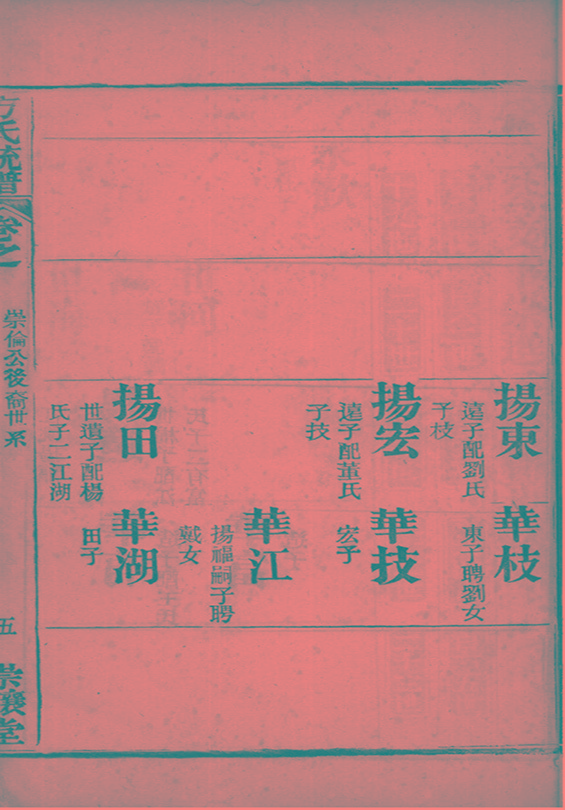 揚東
遠子配劉氏
子枝
華枝
東子聘劉女
揚宏
遠子配董氏
子技
華技
宏子
華江
揚福嗣子聘
戴女
揚田
世遺子配楊
氏子二江湖
華湖
田子
方氏統譜
卷之
崇倫公後裔世系
五
崇讓堂